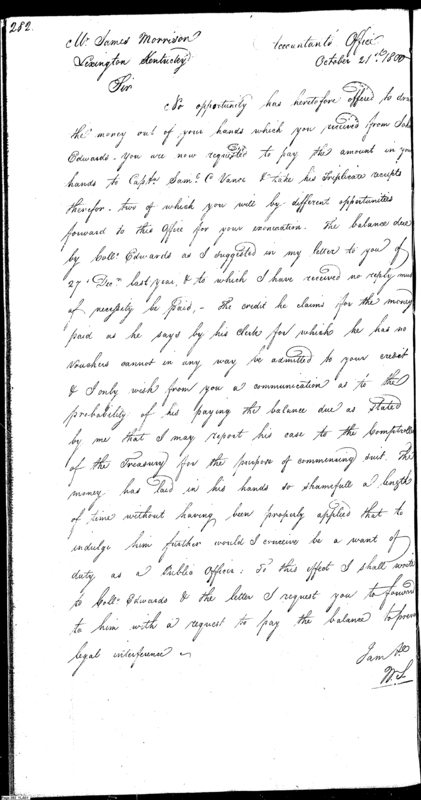 282.
Mr. James Morrison
Lexington Kentucky
Accountants Office
October 21st. 1800
Sir
No opportunity has heretofore offered to draw
the money out of your hands which you received from John
Edwards - you are now requested to pay the amount in your
hands to Captn. Saml. C Vance & take his Triplicate receipts
therefor - two of which you will by different opportunities
forward to this Office for your exoneration. The balance due
by Coll. Edwards as I suggested in my letter to you of
27 Decr. last year, & to which I have received no reply must
of necessity be paid, - The credit he claims for the money
paid as he says by his Clerk for which he has no
Vouchers cannot in any way be admitted to your credit
& I only wish from you a communication as to the
probability of his paying the balance due as Stated
by me that I may report his case to the Comptroller
of the Treasury for the purpose of commencing suit. The
money has laid in his hands so shamefull a length
of time without having been properly applied that to
indulge him further would I conceive be a want of
duty as a Public Officer: To this effect I shall write
to Coll. Edwards & the letter I request you to forward
to him with a request to pay the balance to
legal interference -
I am &c
W. S.